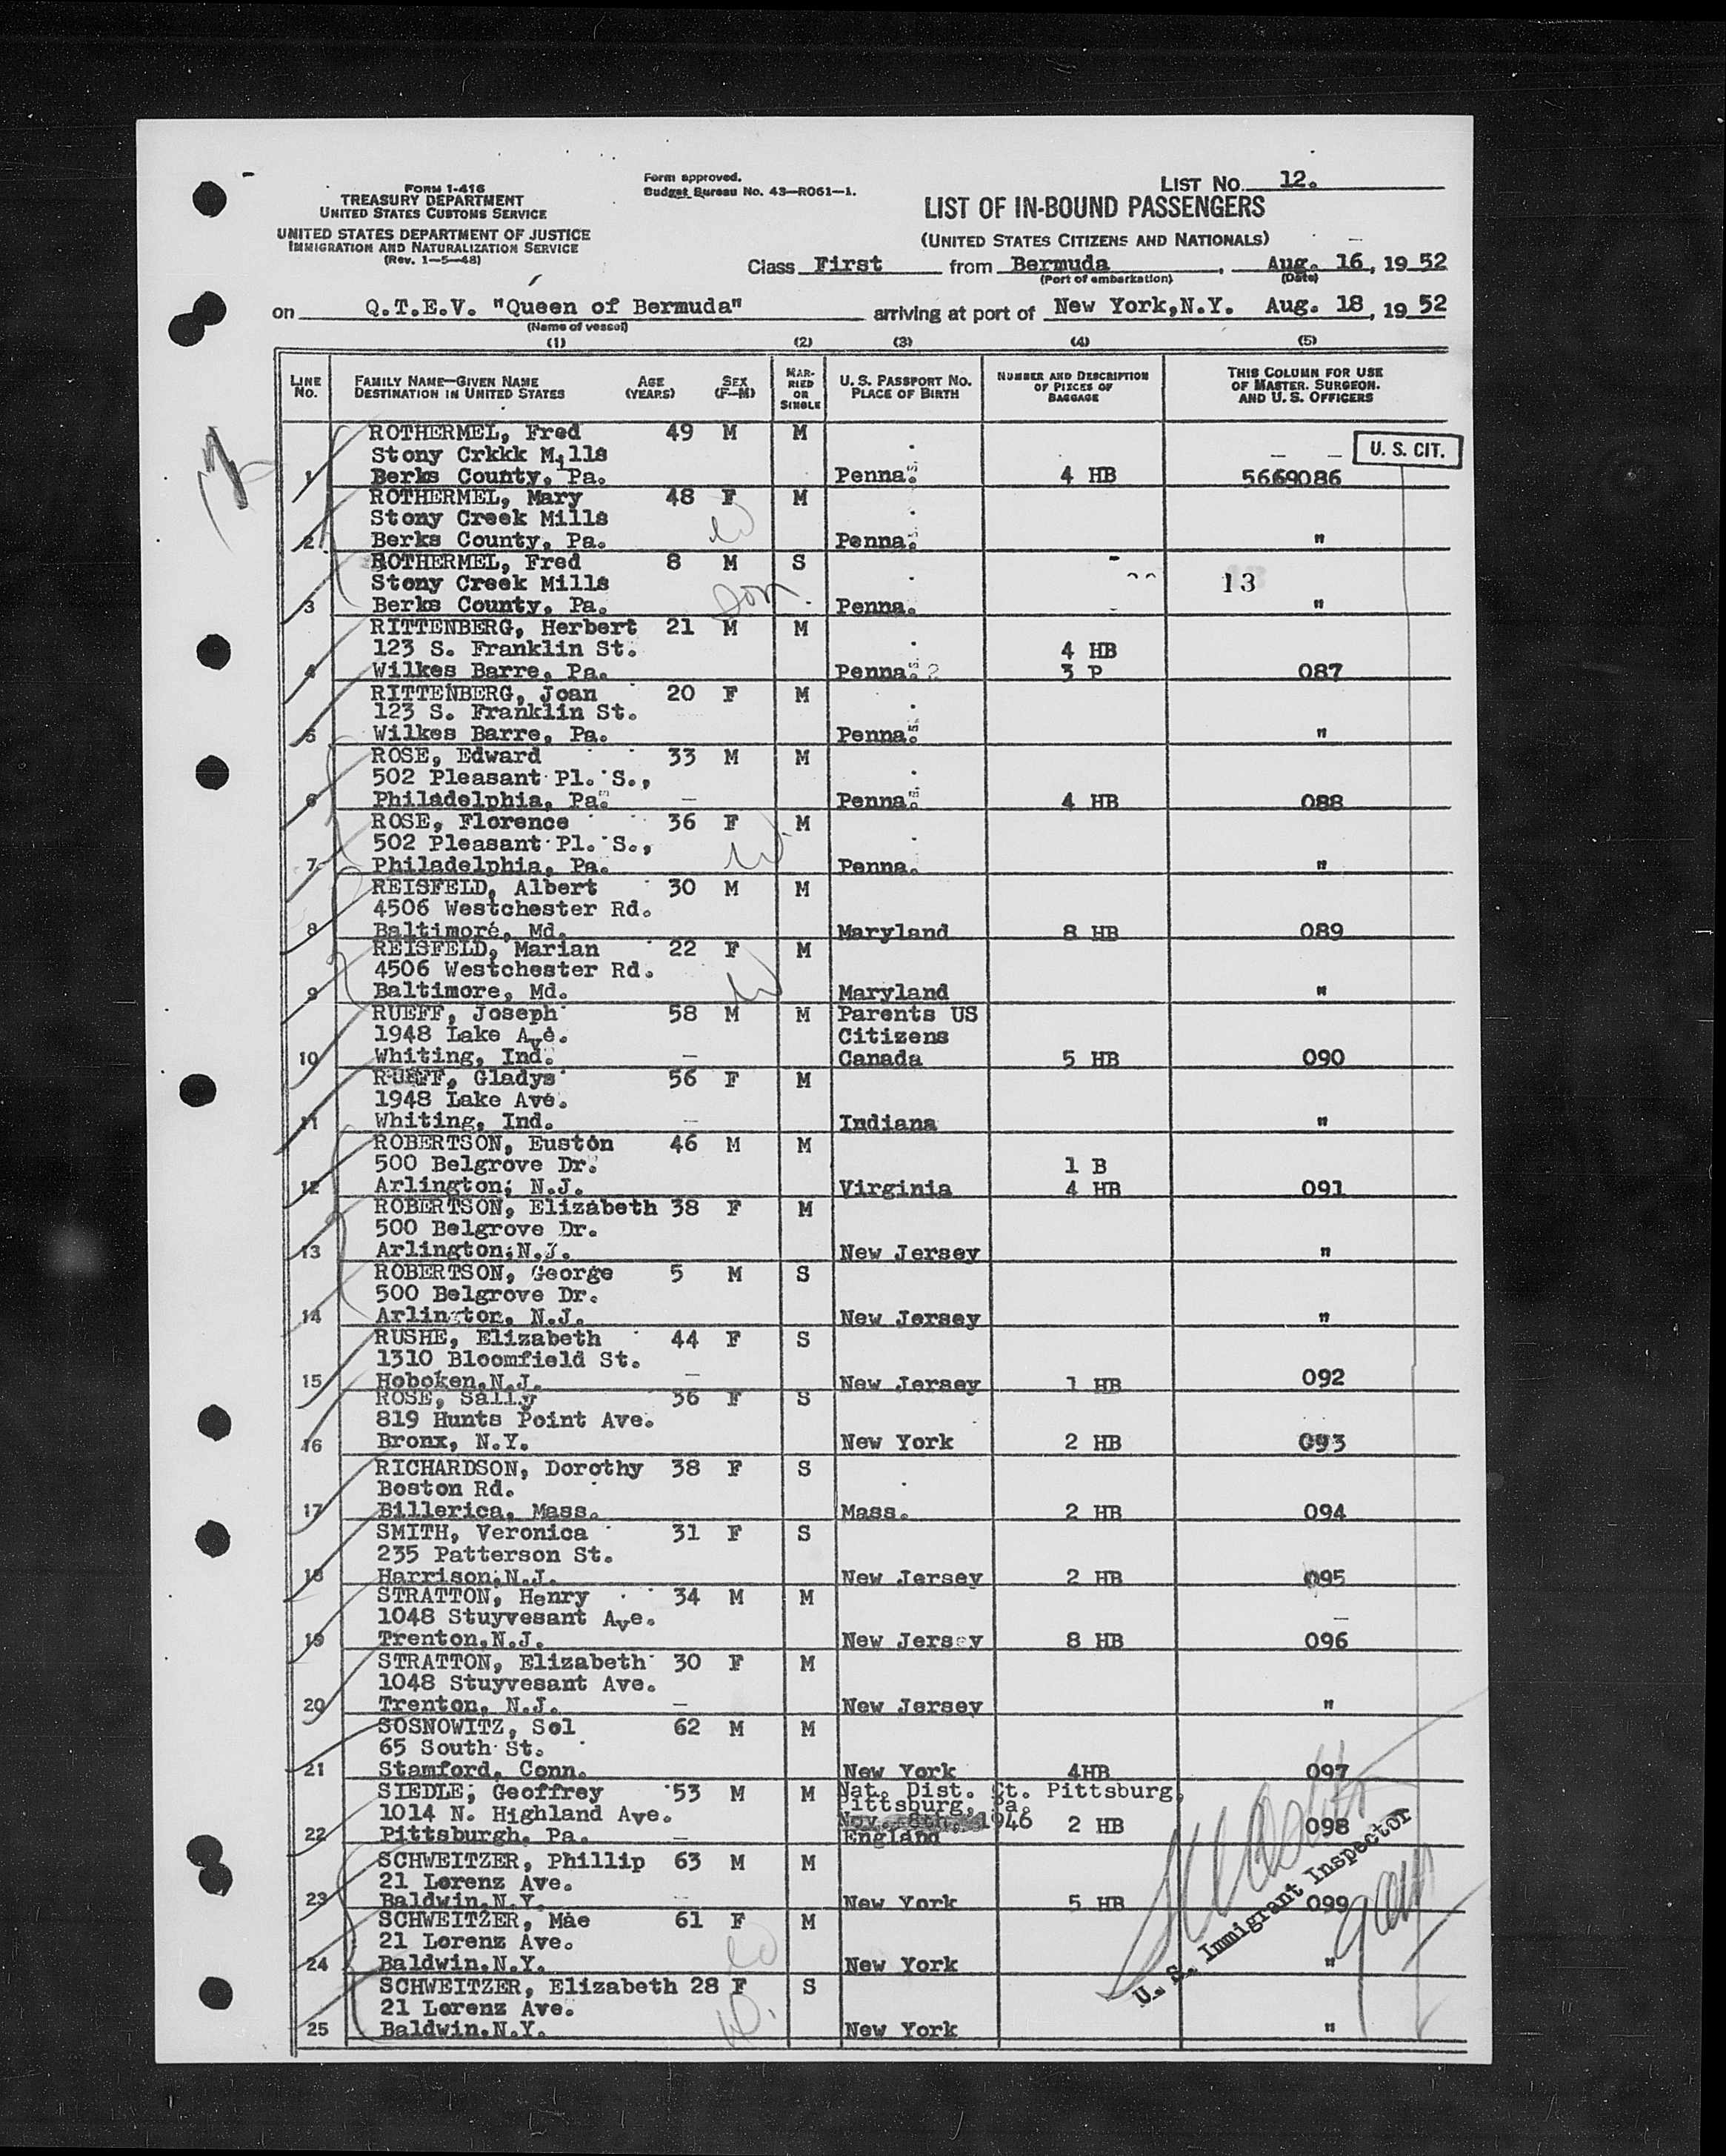 FORM I-416
TREASURY DEPARTMENT
UNITED STATES CUSTOMS SERVICE
UNITED STATES DEPARTMENT OF JUSTICE
IMMIGRATION AND NATURALIZATION SERVICE
(Rev. 1-5-48)
Form approved.
Budget Bureau No. 43-R061-1.
LIST NO. 12.
LIST OF IN-BOUND PASSENGERS
(UNITED STATES CITIZENS AND NATIONALS)
Class First from Bermuda, Aug. 16, 19 52
(Port of embarkation) (Date)
on Q.T.E.V. "Queen of Bermuda" arriving at port of New York,N.Y. Aug. 18, 19 52
(Name of vessel)
(1) (2) (3) (4) (5)
LINE NO. FAMILY NAME—GIVEN NAME DESTINATION IN UNITED STATES AGE (YEARS) SEX (F—M) MARRIED OR SINGLE U. S. PASSPORT NO. PLACE OF BIRTH NUMBER AND DESCRIPTION OF PIECES OF BAGGAGE THIS COLUMN FOR USE OF MASTER, SURGEON, AND U. S. OFFICERS
U. S. CIT.
ROTHERMEL, Fred 49 M M
Stony Crkkk Mills
1 Berks County, Pa. Penna. 4 HB 5669086
ROTHERMEL, Mary 48 F M
Stony Creek Mills W
2 Berks County, Pa. Penna. "
ROTHERMEL, Fred 8 M S
Stony Creek Mills son 13
3 Berks County, Pa. Penna. "
RITTENBERG, Herbert 21 M M
123 S. Franklin St. 4 HB
4 Wilkes Barre, Pa. Penna. 3 P 087
RITTENBERG, Joan 20 F M
123 S. Franklin St.
5 Wilkes Barre, Pa. Penna. "
ROSE, Edward 33 M M
502 Pleasant Pl. S.,
6 Philadelphia, Pa. Penna. 4 HB 088
ROSE, Florence 36 F M
502 Pleasant Pl. S., W.
7 Philadelphia, Pa. Penna. "
REISFELD, Albert 30 M M
4506 Westchester Rd.
8 Baltimore, Md. Maryland 8 HB 089
REISFELD, Marian 22 F M
4506 Westchester Rd. W
9 Baltimore, Md. Maryland "
RUEFF, Joseph 58 M M Parents US
1948 Lake Ave. Citizens
10 Whiting, Ind. Canada 5 HB 090
RUEFF, Gladys 56 F M
1948 Lake Ave.
11 Whiting, Ind. Indiana "
ROBERTSON, Euston 46 M M
500 Belgrove Dr. 1 B
12 Arlington, N.J. Virginia 4 HB 091
ROBERTSON, Elizabeth 38 F M
500 Belgrove Dr.
13 Arlington,N.J. New Jersey "
ROBERTSON, George 5 M S
500 Belgrove Dr.
14 Arlington, N.J. New Jersey "
RUSHE, Elizabeth 44 F S
1310 Bloomfield St.
15 Hoboken,N.J. New Jersey 1 HB 092
ROSE, Sally 36 F S
819 Hunts Point Ave.
16 Bronx, N.Y. New York 2 HB 093
RICHARDSON, Dorothy 38 F S
Boston Rd.
17 Billerica, Mass. Mass. 2 HB 094
SMITH, Veronica 31 F S
235 Patterson St.
18 Harrison,N.J. New Jersey 2 HB 095
STRATTON, Henry 34 M M
1048 Stuyvesant Ave.
19 Trenton,N.J. New Jersey 8 HB 096
STRATTON, Elizabeth 30 F M
1048 Stuyvesant Ave.
20 Trenton, N.J. New Jersey "
SOSNOWITZ, Sol 62 M M
65 South St.
21 Stamford, Conn. New York 4HB 097
SIEDLE, Geoffrey 53 M M Nat. Dist. Ct. Pittsburg,
1014 N. Highland Ave. Pittsburg, Pa.
22 Pittsburgh, Pa. Nov. 8th, 1946 2 HB 098
England
SCHWEITZER, Phillip 63 M M
21 Lorenz Ave.
23 Baldwin,N.Y. New York 5 HB 099
SCHWEITZER, Mae 61 F M
21 Lorenz Ave. W
24 Baldwin,N.Y. New York "
SCHWEITZER, Elizabeth 28 F S
21 Lorenz Ave. D.
25 Baldwin,N.Y. New York "
U. S. Immigrant Inspector